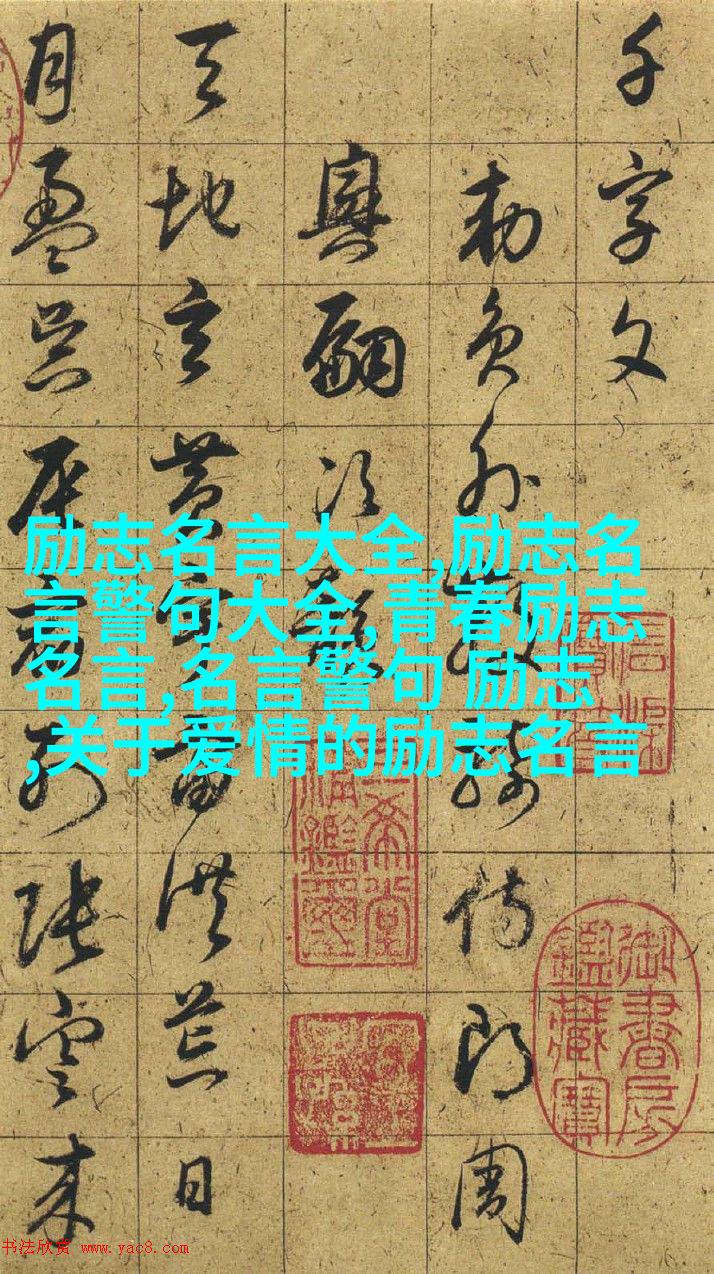 千字文
勅員外散騎侍郎周
興嗣次韻
天地玄黃宇宙洪荒日
月盈昃辰宿列張寒來
励志名言大全,励志名
言警句大全,青春励志
名言,名言警句 励志
,关于爱情的励志名言
三希堂
精鑑璽
御書房
鑑藏寶
书法欣赏 www.yac8.com